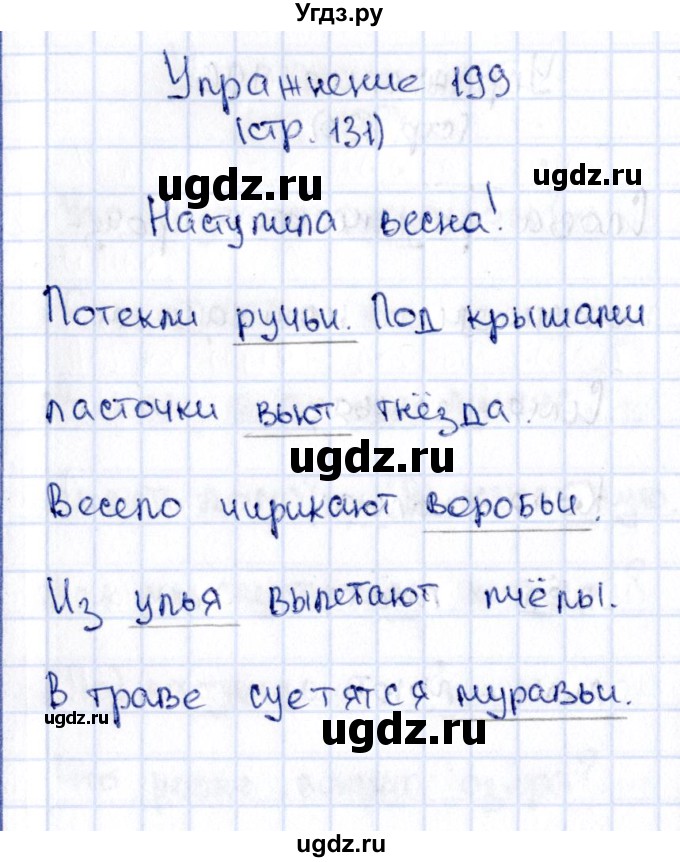 Угдз.ру
Упражнение 199
(стр. 131)
ugdz.ru
ugdz.ru
Наступила весна!
Потекли ручьи. Под крышами
ласточки вьют гнёзда.
ugdz.ru
Весело чирикают воробьи.
Из улья вылетают пчёлы.
В траве суетятся муравьи.
ugdz.ru
ugdz.ru
ugdz.ru